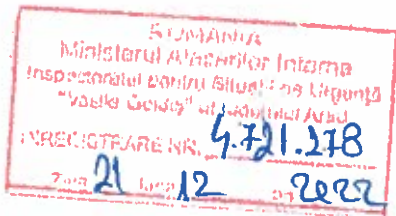 ROMANIA
Ministerul Afacerilor Interne
Inspectoratul pentru Situații de Urgență
"Vasile Goldiș" al Județului Arad
INREGISTRARE NR. 4.721.278
Ziua 21 luna 12 2022